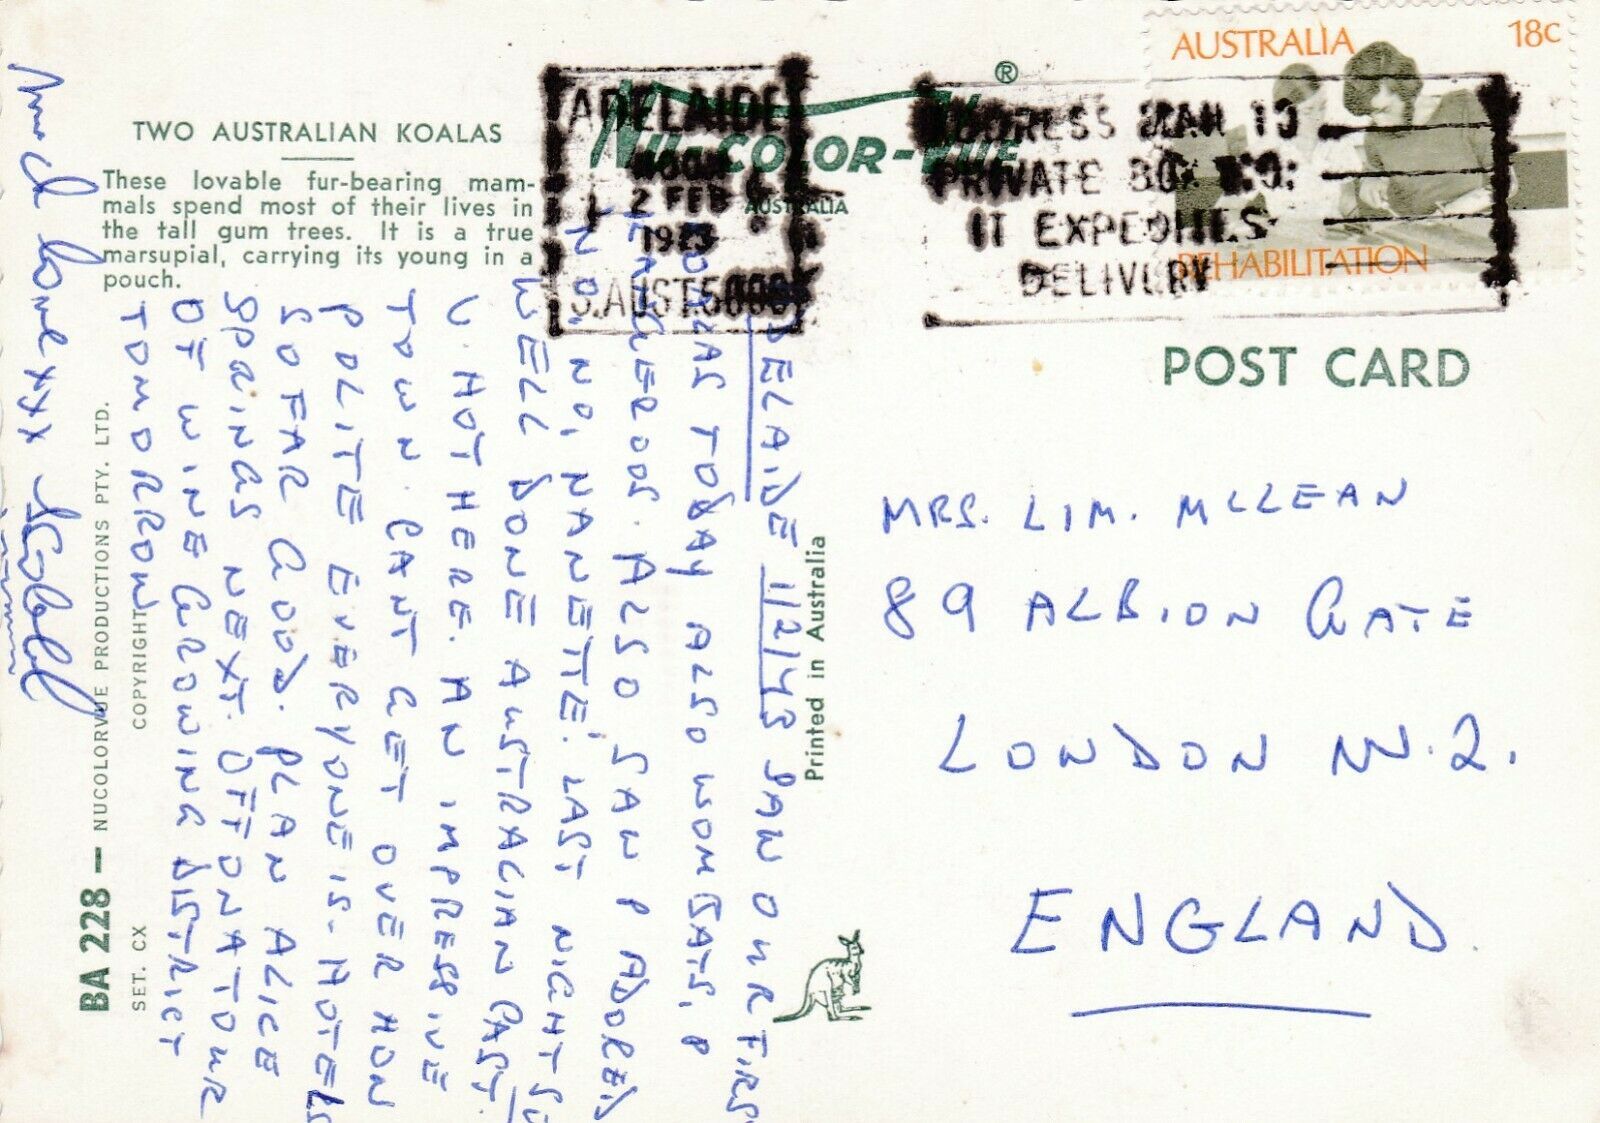 TWO AUSTRALIAN KOALAS
These lovable fur-bearing mam-
mals spend most of their lives in
the tall gum trees. It is a true
marsupial, carrying its young in a
pouch.
ADELAIDE
2 FEB
S.AUST.5000
NU-COLOR-VUE ®
AUSTRALIA
ADDRESS MAIL TO
PRIVATE BOX NO:
IT EXPEDITES
DELIVERY
AUSTRALIA 18c
REHABILITATION
POST CARD
MRS. LIM. MCLEAN
89 ALBION GATE
LONDON W.2.
ENGLAND.
ADELAIDE 11/2/73 SAW OUR FIRST
KOALAS TODAY ALSO WOMBATS,
KANGEROOS. ALSO SAW
NO, NO, NANETTE' LAST NIGHT
WELL DONE AUSTRALIAN CAST.
V. HOT HERE. AN IMPRESSIVE
TOWN. CANT GET OVER HOW
POLITE EVERYONE IS. HOTELS
SO FAR GOOD. PLAN ALICE
SPRINGS NEXT. OFF ON A TOUR
OF WINE GROWING DISTRICT
TOMORROW
Much love xxx Isobel
BA 228 — NUCOLORVUE PRODUCTIONS PTY. LTD.
SET. CX COPYRIGHT
Printed in Australia